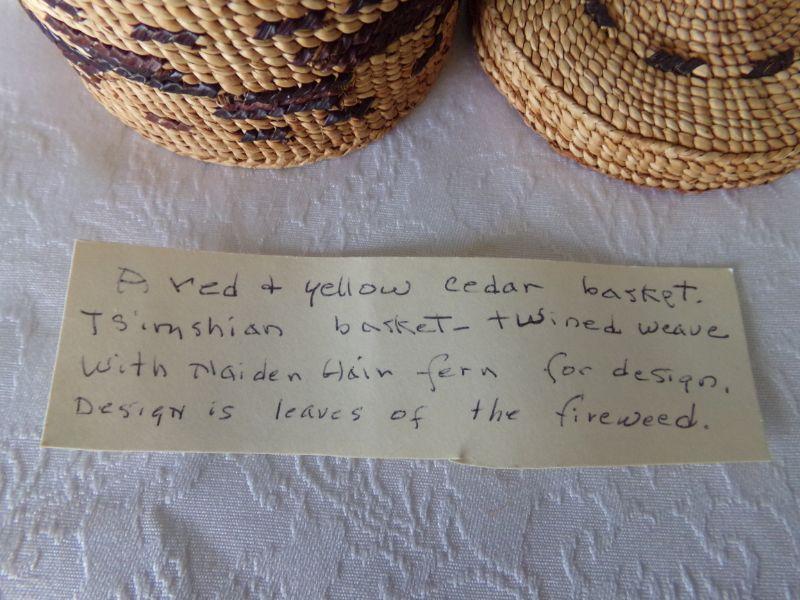 A red + yellow cedar basket.
Ts'imshian basket - twined weave
with Maiden Hair fern for design.
Design is leaves of the fireweed.